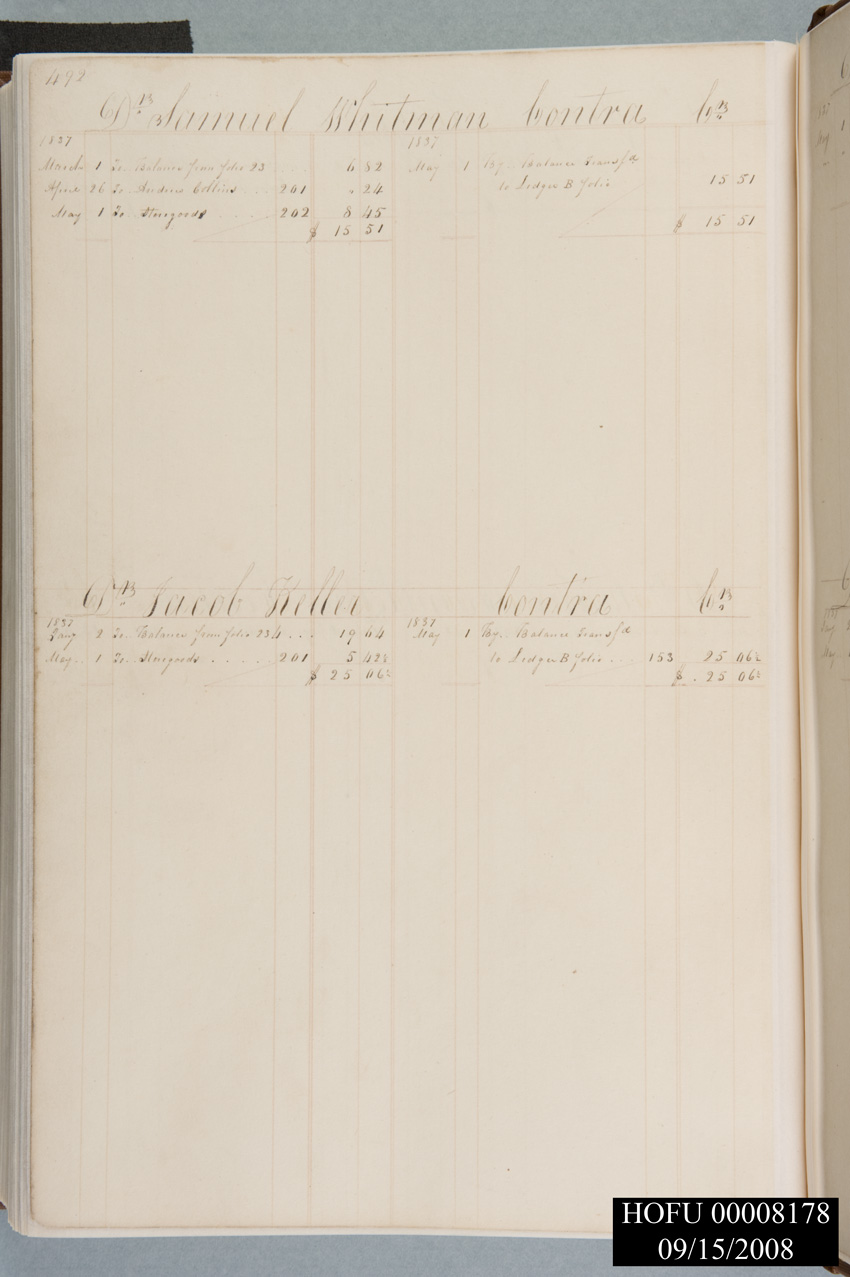 492
Drs Samuel Whitman Contra Crs
1837
March 1 To Balance from folio 23 .... 6 82
April 26 To Andrew Collins ... 201 " 24
May 1 To Storegoods ..... 202 8 45
$ 15 51
1837
May 1 By Balance transfd
to Ledger B folio 15 51
$ 15 51
Drs Jacob Keller Contra Crs
1837
Jany 2 To Balance from folio 234 ... 19 64
May 1 To Storegoods ..... 201 5 42½
$ 25 06½
1837
May 1 By Balance transfd
to Ledger B folio ... 153 25 06½
$ 25 06½
HOFU 00008178
09/15/2008